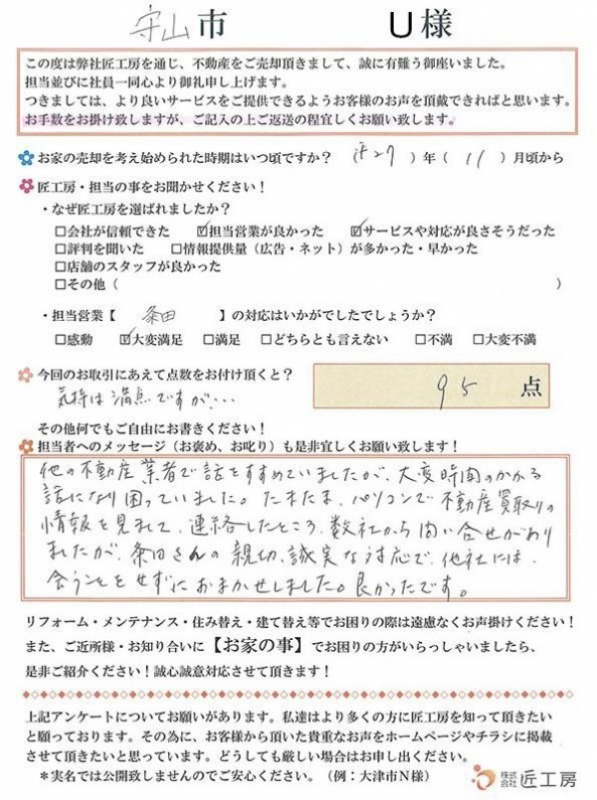 守山市 U様
この度は弊社匠工房を通じ、不動産をご売却頂きまして、誠に有難う御座いました。
担当並びに社員一同心より御礼申し上げます。
つきましては、より良いサービスをご提供できるようお客様のお声を頂戴できればと思います。
お手数をお掛け致しますが、ご記入の上ご返送の程宜しくお願い致します。
お家の売却を考え始められた時期はいつ頃ですか？（H27）年（11）月頃から
匠工房・担当の事をお聞かせください！
・なぜ匠工房を選ばれましたか？
□会社が信頼できた ☑担当営業が良かった ☑サービスや対応が良さそうだった
□評判を聞いた □情報提供量（広告・ネット）が多かった・早かった
□店舗のスタッフが良かった
□その他（ ）
・担当営業【 条田 】の対応はいかがでしたでしょうか？
□感動 ☑大変満足 □満足 □どちらとも言えない □不満 □大変不満
今回のお取引にあえて点数をお付け頂くと？ 95 点
気持は満点ですが・・・
その他何でもご自由にお書きください！
担当者へのメッセージ（お褒め、お叱り）も是非宜しくお願い致します！
他の不動産業者で話をすすめていましたが、大変時間のかかる
話になり困っていました。たまたま、パソコンで不動産買取りの
情報を見れて、連絡したところ、数社から問い合せがあり
ましたが、条田さんの親切、誠実な対応で、他社には
会うこともせずにおまかせしました。良かったです。
リフォーム・メンテナンス・住み替え・建て替え等でお困りの際は遠慮なくお声掛けください！
また、ご近所様・お知り合いに【お家の事】でお困りの方がいらっしゃいましたら、
是非ご紹介ください！誠心誠意対応させて頂きます！
上記アンケートについてお願いがあります。私達はより多くの方に匠工房を知って頂きたい
と願っております。その為に、お客様から頂いた貴重なお声をホームページやチラシに掲載
させて頂きたいと思っています。どうしても厳しい場合はお申し出ください。
＊実名では公開致しませんのでご安心ください。（例：大津市N様） 株式会社 匠工房